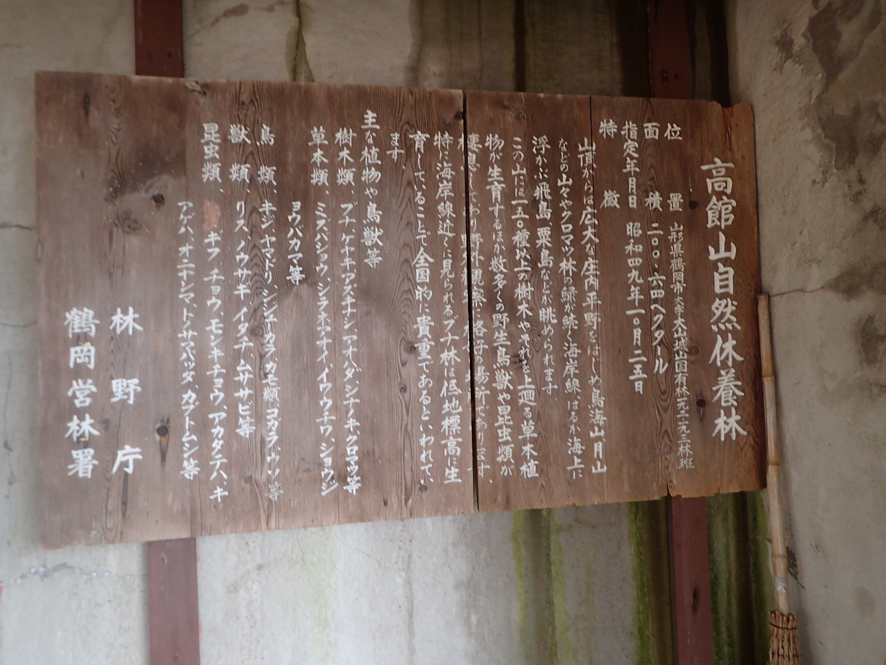 高館山自然休養林
位置 山形県鶴岡市大字大山城山国有林
面積 二〇〇・六四ヘクタール
指定年月日 昭和四九年一〇月二五日
特徴
山頂からは広大な庄内平野をはじめ鳥海山月山
などの山々やクロマツ林の緑が続く海岸線、はるか海上に
浮かぶ飛島、粟島などが眺められます
この山は一五〇種以上の樹木やそれを上廻る草木植
物が生育するほか数多くの野生鳥獣や昆虫類が
棲む
特に海岸線近くに見られるブナ林は低地標高に生
育していることで全国的に貴重であるといわれてい
ます
主な植物や鳥獣等
樹木類、ブナ、ケヤキ
草本類、ミスミソウ、シラネアオイ、イワウチワ、ショウジ
ョウバカマ等
鳥類、キジ、ヤマドリ
獣類、リス、ノウサギ、イタチ、ムササビ等
昆虫類、ギフチョウ、モンキチョウ、アカタテハ、キ
アゲハ、オニヤンマ、トノサマバッタ、カブトムシ等
林野庁
鶴岡営林署